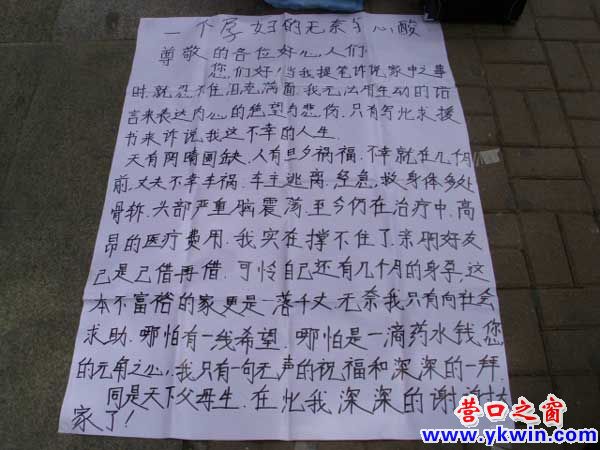 一个孕妇的无奈与心酸
尊敬的各位好心人们:
您们好!当我提笔诉说家中之事
时,就忍不住泪流满面.我无法用生动的语
言来表达内心的绝望与悲伤.只有写此求援
书来诉说我这不幸的人生.
天有阴晴圆缺,人有旦夕祸福.不幸就在几个月
前.丈夫不幸车祸.车主逃离.经急救身体多处
骨折.头部严重脑震荡.至今仍在治疗中.高
昂的医疗费用.我实在撑不住了.亲朋好友
已是已借再借.可怜自己还有几个月的身孕,这
本不富裕的家更是一落千丈.无奈我只有向社会
求助.哪怕有一线希望.哪怕是一滴药水钱.您
的元角之心.我只有一句无声的祝福和深深的一拜.
同是天下父母生.在此我深深的谢谢大
家了!
营口之窗
www.ykwin.com